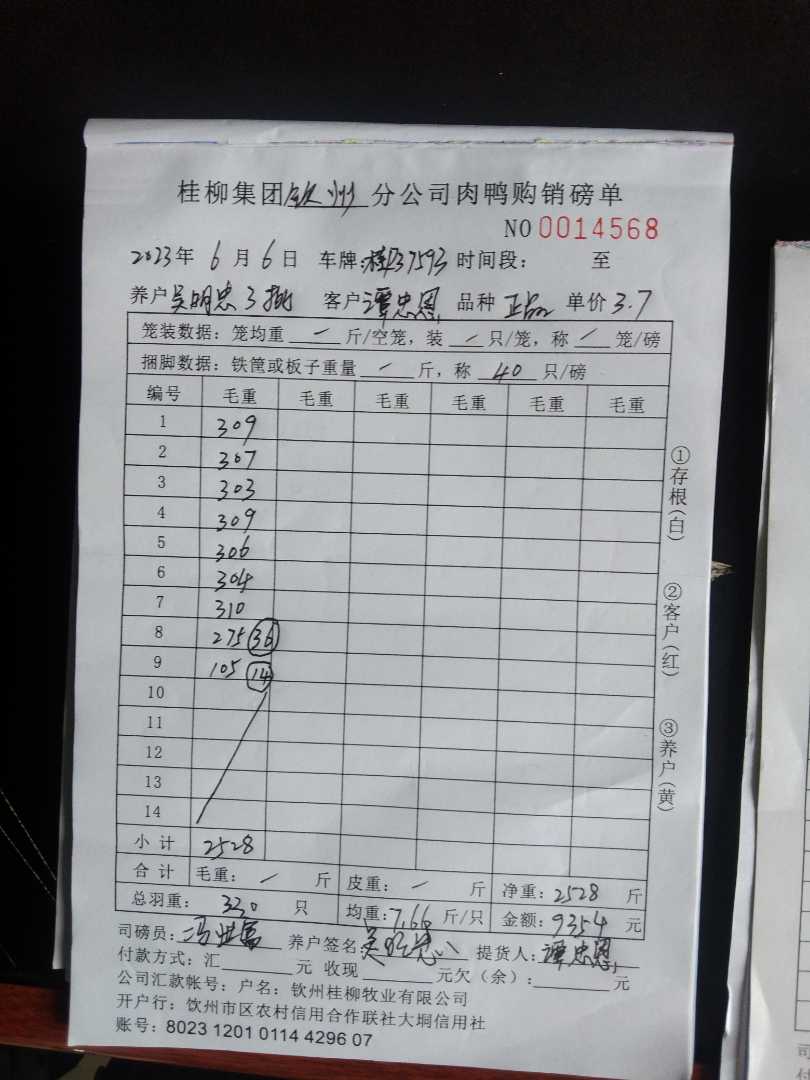 桂柳集团钦州分公司肉鸭购销磅单
NO 0014568
2023年 6月 6日 车牌: 37593 时间段: 至
养户 吴明忠3批 客户 谭忠恩 品种 正品 单价 3.7
笼装数据: 笼均重 — 斤/空笼, 装 — 只/笼, 称 — 笼/磅
捆脚数据: 铁筐或板子重量 — 斤, 称 40 只/磅
编号 毛重 毛重 毛重 毛重 毛重 毛重
1 309
2 307
3 303
4 309
5 306
6 304
7 310
8 275 36
9 105 14
10
11
12
13
14
小计 2528
合计 毛重: — 斤 皮重: — 斤 净重: 2528 斤
总羽重: 330 只 均重: 7.66 斤/只 金额: 9354 元
司磅员: 养户签名: 提货人: 谭忠恩
付款方式: 汇 元 收现 元欠(余): 元
公司汇款帐号: 户名: 钦州桂柳牧业有限公司
开户行: 钦州市区农村信用合作联社大垌信用社
账号: 8023 1201 0114 4296 07
①存根(白)
②客户(红)
③养户(黄)